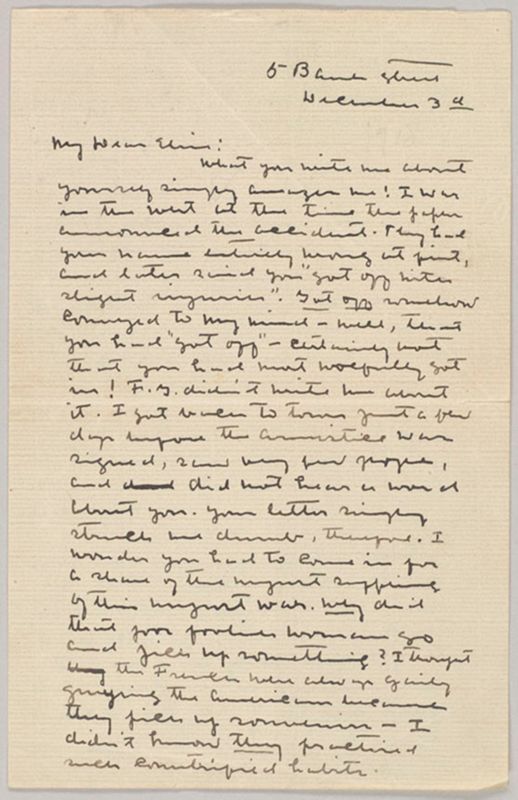 5 Bank Street
December 3rd
My Dear Elsie:
What you write me about
yourself simply amazes me! I was
in the west at the time the paper
announced the accident. They had
your name entirely wrong at first,
and later said you "got off with
slight injuries". Got off somehow
conveyed to my mind - well, that
you had "got off" - certainly not
that you had most woefully got
in! F.G. didn't write me about
it. I got back to town just a few
days before the armistice was
signed, saw very few people,
and did not hear a word
about you. Your letter simply
struck me dumb, therefore. I
wonder you had to come in for
a share of the unjust suffering
of this unjust war. Why did
that poor foolish woman go
and pick up something? I thought
the French were always gaily
guying the Americans because
they pick up souvenirs - I
didn't know they practiced
such countrified habits.